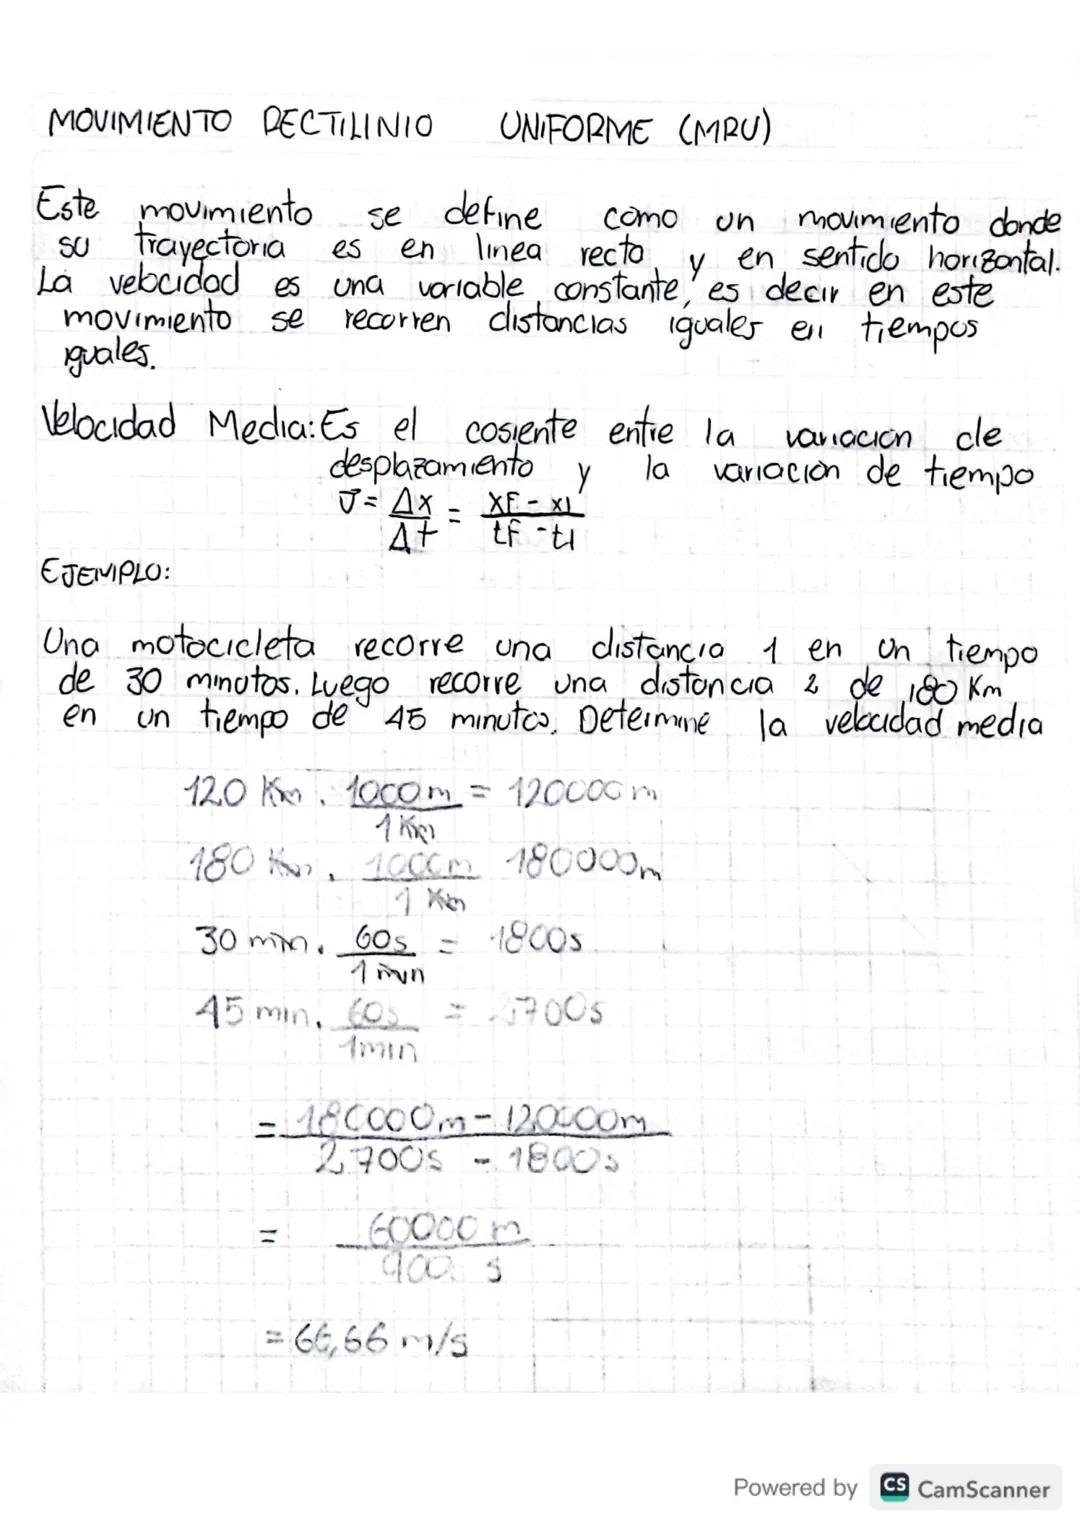 MOVIMIENTO RECTILINIO UNIFORME (MRU)
Este movimiento se define como un movimiento donde
su trayectoria es en linea recta y en sentido horizontal.
La velocidad es una variable constante, es decir en este
movimiento se recorren distancias iguales en tiempos
iguales.
Velocidad Media: Es el cosiente entre la variación de
desplazamiento y la variación de tiempo
v̅ = Δx/Δt = xF - xI/tF - tI
EJEMPLO:
Una motocicleta recorre una distancia 1 en un tiempo
de 30 minutos. Luego recorre una distancia 2 de 180 Km
en un tiempo de 45 minutos. Determine la velocidad media
120 Km . 1000 m / 1 Km = 120000 m
180 Km . 1000 m / 1 Km 180000 m
30 min . 60s / 1 min = 1800s
45 min . 60s / 1 min = 2700s
= 180000 m - 120000 m / 2700s - 1800s
= 60000 m / 900 s
= 66,66 m/s
Powered by CS CamScanner